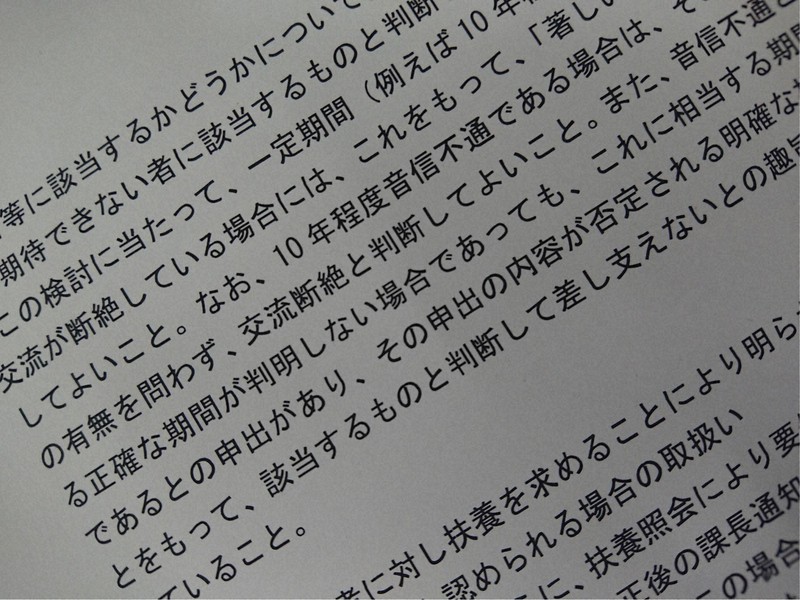 等に該当するかどうかについて
期待できない者に該当するものと判断
この検討に当たって、一定期間（例えば10年程
交流が断絶している場合には、これをもって、「著しい
してよいこと。なお、10年程度音信不通である場合は、その
の有無を問わず、交流断絶と判断してよいこと。また、音信不通と
る正確な期間が判明しない場合であっても、これに相当する期間
であるとの申出があり、その申出の内容が否定される明確な
とをもって、該当するものと判断して差し支えないとの趣旨
ていること。
者に対し扶養を求めることにより明ら
認められる場合の取扱い
に、扶養照会により要
正後の課長通知
この場合